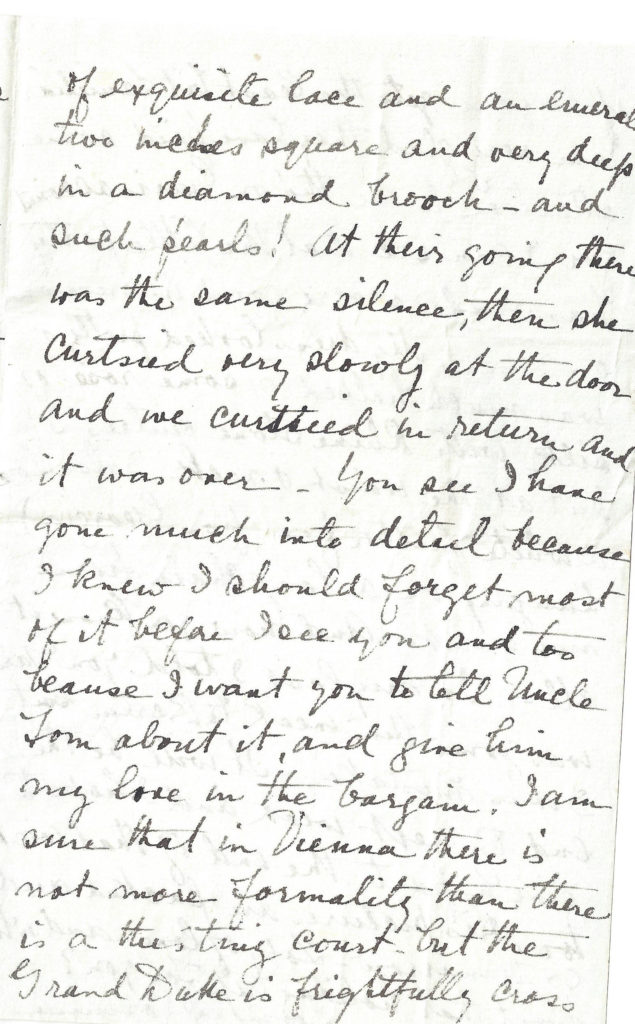 of exquisite lace and an emeral
two inches square and very deep
in a diamond brooch - and
such pearls! At their going there
was the same silence, then she
curtsied very slowly at the door
and we curtsied in return and
it was over - You see I have
gone much into detail because
I knew I should forget most
of it before I see you and too
beause I want you to tell Uncle
Tom about it, and give him
my love in the bargain. I am
sure that in Vienna there is
not more formality than there
is a this court - but the
Grand Duke is frightfully cross